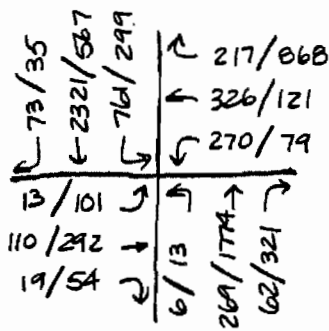 73/35
2321/567
761/299
217/868
326/121
270/79
13/101
110/292
19/54
6/13
269/1774
62/321